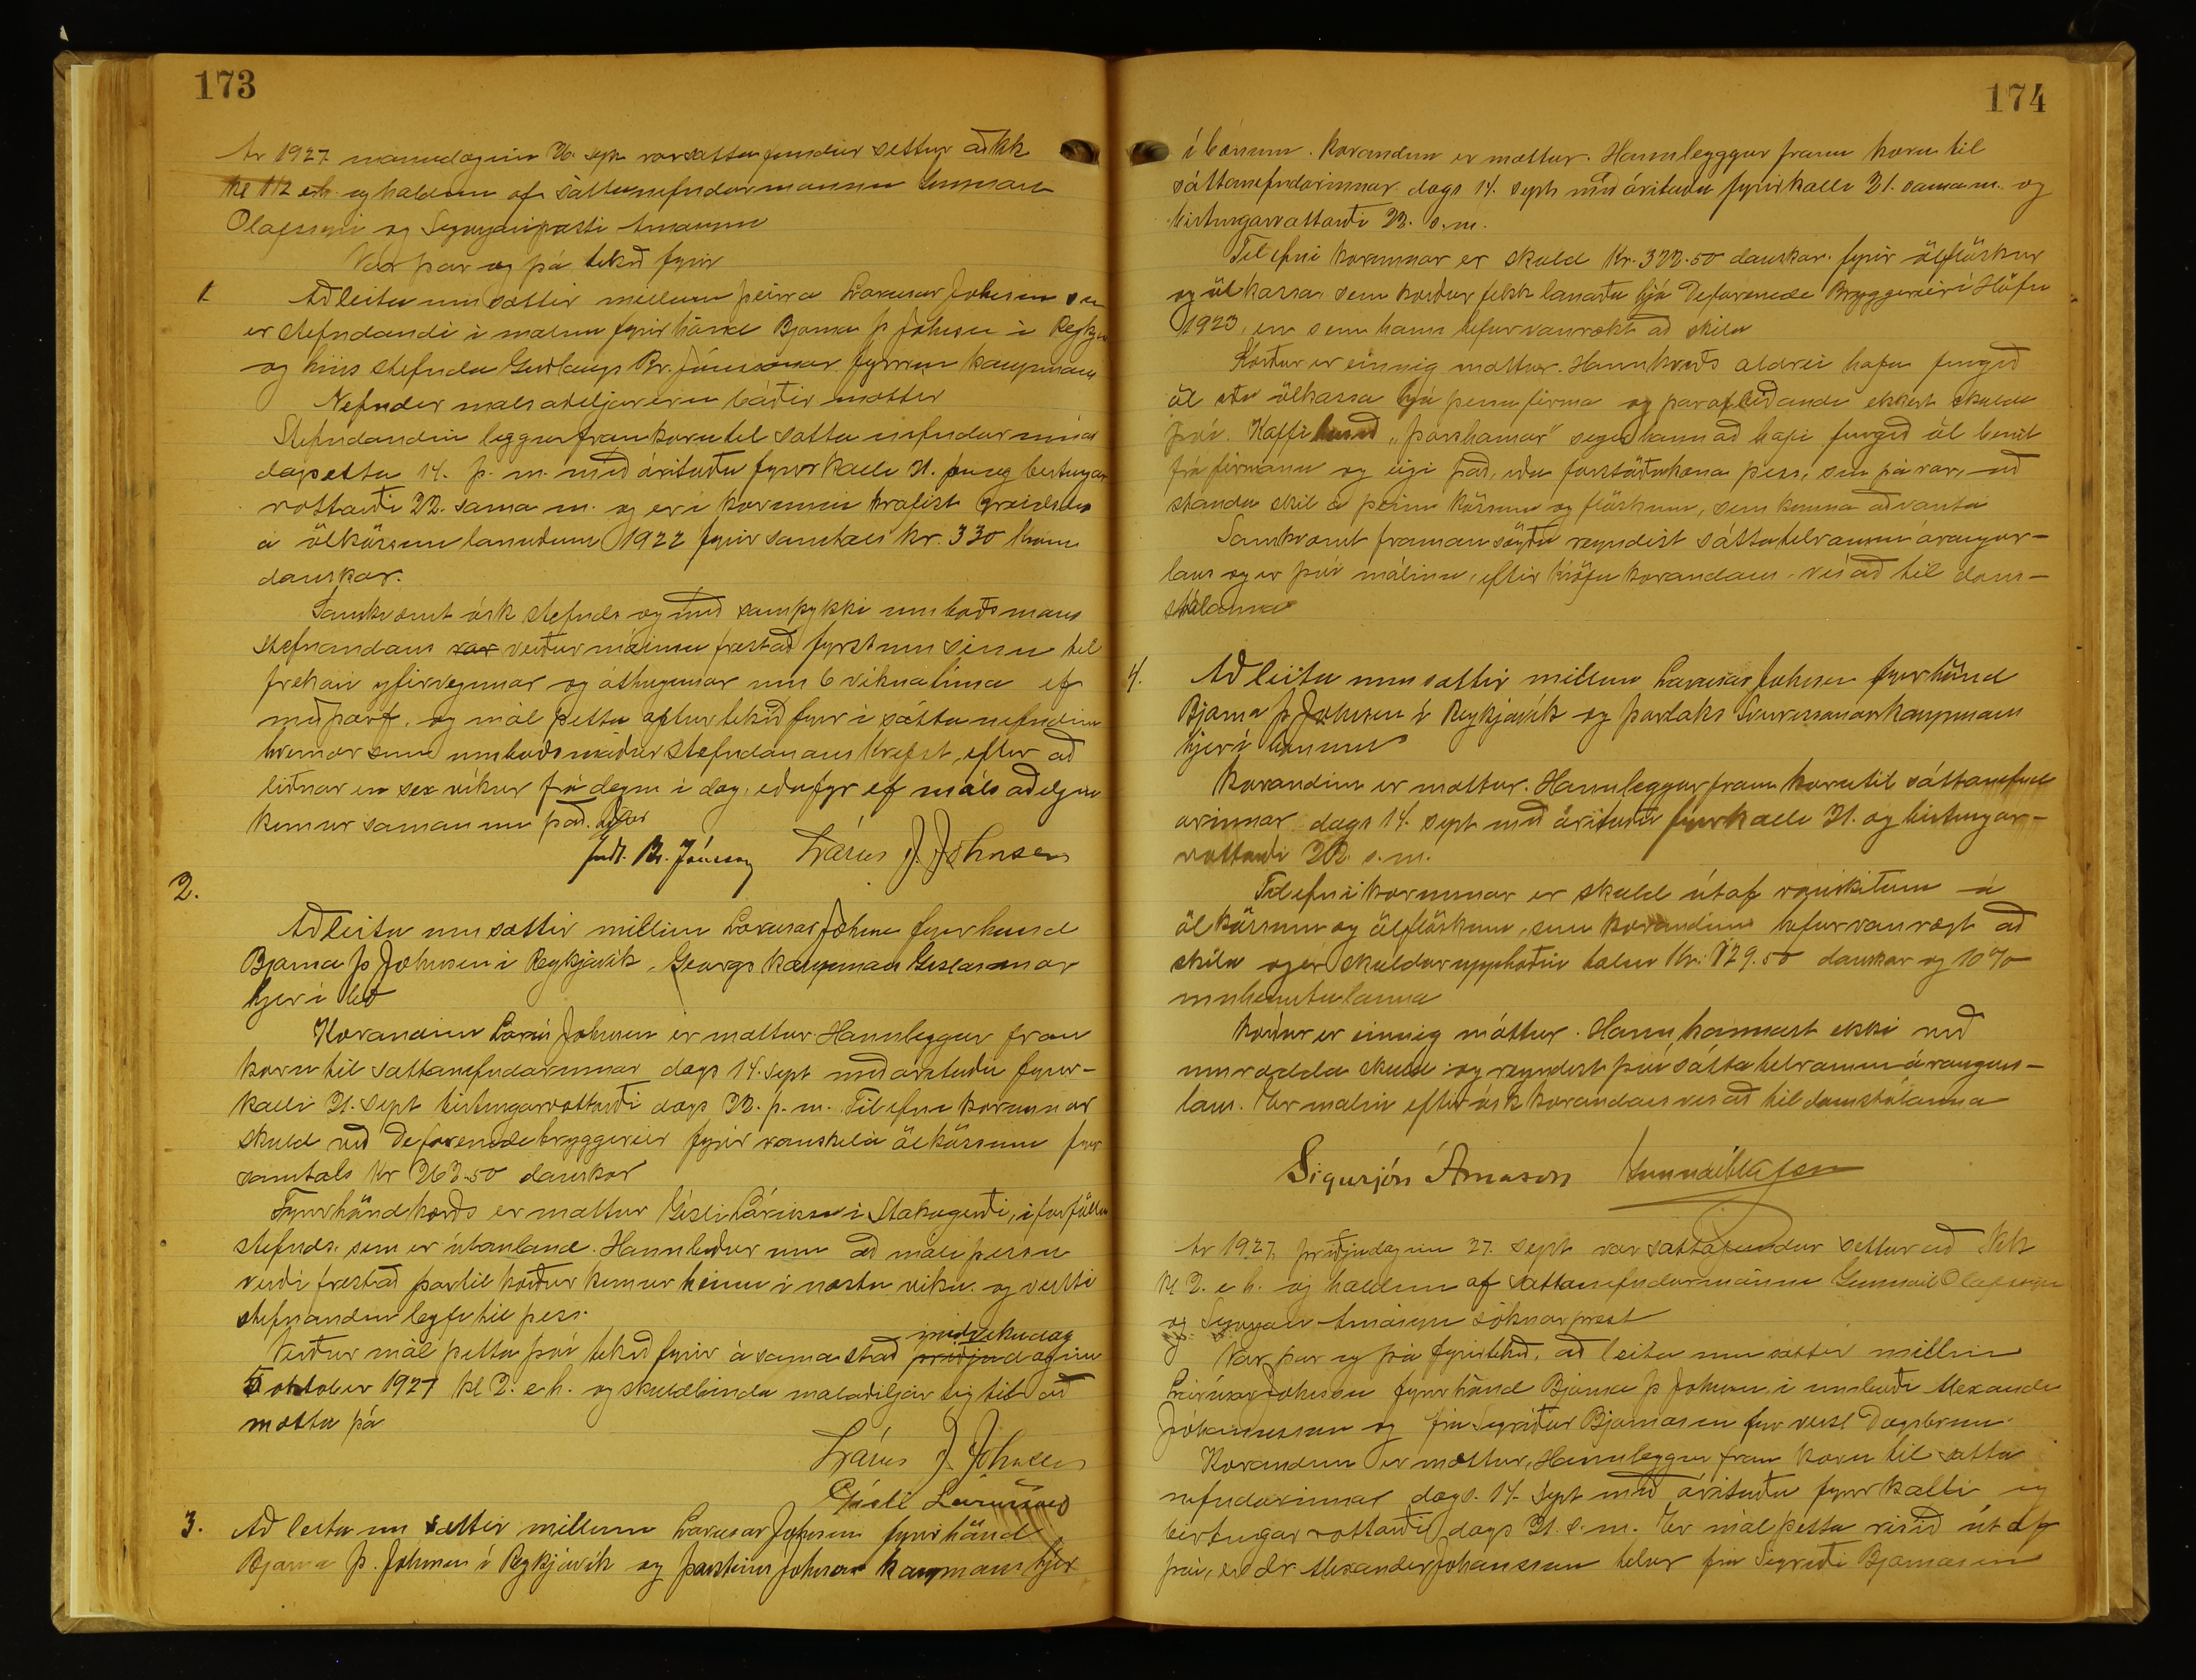 173
Ár 1927 mánudaginn 26. sept. var sáttafundur settur að kk
kl 1 1/2 e.h. og haldinn af sáttanefndarmönnum Gunnari
Olafssyni og Sigurjóni presti Árnasyni
Var þar og þá tekið fyrir
1 Að leita um sættir millum þeirra Lárusar Johnsen sem
er stefnandi i málinu fyrir hönd Bjarna Þ Johnsen i Reykjav
og hins stefnda Guðlaugs Br. Jónssonar fyrrum kaupmans
Nefndir málsaðiljar eru báðir mættir
Stefnandinn leggur fram kæru til sáttanefndarinnar
dagsetta 14. þ. m. með árituðu fyrirkalli 21. og birtingar
vottorði 22. sama m. og er i kærunni krafist greiðslu
á ölkössum lánuðum 1922 fyrir samtals kr. 330
danskar.
Samkvæmt ósk stefnds og með samþykki umboðsmans
stefnandans var verður málinu frestað fyrst um sinn til
frekari yfirvegunar og áthugunar um 6 vikna tíma ef
með þarf, og mál þetta aftur tekið fyrir i sáttanefndinni
hvenær sem umboðsmaður stefnandans krefst, eftir að
liðnar eru sex vikur frá degnum i dag, eða fyr ef máls aðiljum
kemur saman um það.
Guðl. Br. Jónsson Lárus J. Johnsen
2.
Að leita um sættir millum Lárusar Johnsen fyrir hönd
Bjarna Þ Johnsen i Reykjavík, Georgs kaupmans Gíslasonar
hjer i bæ
Kærandinn Lárus Johnsen er mættur. Hann leggur fram
kæru til sáttanefndarinnar dags 14. sept með árituðu fyrir-
kalli 21. sept birtingarvottorði dags 22. þ. m. Tilefni kærunnar
skuld við De forenede bryggerier fyrir vanskil á ölkössum fyrir
samtals kr 262.50 danskar
Fyrir hönd kærðs er mættur Gísli Lárusson i Stakagerði, i forföllum
stefnds. sem er utanlands. Hann biður um að máli þessu
verði frestað þar til kærður kemur heim i næstu viku. og veitti
stefnandinn leyfi til þess.
Verður mál þetta því tekið fyrir á sama stað þriðjudaginn miðvikudag
5 oktober 1927 kl 2. e.h. og skuldbinda málsaðiljar sig til að
mæta þá
Lárus J. Johnsen
Gísli Lárusson
3. Að leita um sættir millum Lárusar Johnsen fyrir hönd
Bjarna Þ. Johnsen i Reykjavík og Þorsteins Johnson kaupmans hjer
174
í bænum. Kærandinn er mættur. Hann leggur fram kæru til
sáttanefndarinnar dags 14. sept. með árituðu fyrirkalli 21. sama m. og
birtingarvottorði 22. s.m.
Tilefni kærunnar er skuld Kr. 322.50 danskar. fyrir ölflöskur
og ölkassa, sem kærður fekk lánaða hjá De forenede Bryggerier i Höfn
1923, en sem hann hefur vanrækt að skila
Kærður er einnig mættur. Hann kveðst aldrei hafa fengið
öl eða ölkassa hjá þessu firma og þar af leiðandi ekkert skulda
því. Kaffihúsið „Þórshamar" segir hann að hafi fengið öl beint
frá firmanu og eigi það, eða forstöðukona þess, sem þá var, að
standa skil á þeim kössum og flöskum, sem kunna að vanta
Samkvæmt framansögðu reyndist sáttatilraunin árangur-
laus og er því málinu, eftir kröfu kærandans, vísað til dóm-
stólanna
4. Að leita um sættir millum Lárusar Johnsen fyrir hönd
Bjarna Þ Johnsen i Reykjavík og Þorláks Sverrissonar kaupmans
hjer i bænum
Kærandinn er mættur. Hann leggur fram kæru til sáttanefnd
arinnar dags 14. sept með árituðu fyrirkalli 21. og birtingar-
vottorði 22. s.m.
Tilefni kærunnar er skuld út af vanskilum á
ölkössum og ölflöskum, sem kærandinn hefur vanrægt að
skila og er skuldarupphæðin talin Kr. 129.50 danskar og 10%
innheimtulauna
Kærður er einnig mættur. Hann kannast ekki við
umrædda skuld og reyndist því sáttatilraunin árangurs-
laus. Er málinu eftir ósk kærandans vísað til dómstólanna
Sigurjón Árnason Gunnar Ólafsson
Ár 1927, þriðjudaginn 27. sept var sáttafundur settur að kk
kl 2. e.h. og haldinn af sáttanefndarmönnum Gunnari Olafssyni
og Sigurjóni Árnasyni sóknarprest
Var þar og þá fyrirtekið, að leita um sættir millum
Lárusar Johnsen fyrir hönd Bjarna Þ Johnsen, i umboði Alexanders
Jóhannessonar og frú Sigríðar Bjarnasen fyrir verzl Dagsbrún
Kærandinn er mættur, Hann leggur fram kæru til sátta
nefndarinnar dags. 14. sept með árituðu fyrirkalli og
birtingarvottorði dags 21. s.m. Er mál þetta risið út af
því, að dr Alexander Johannesson telur frú Sigríði Bjarnasen